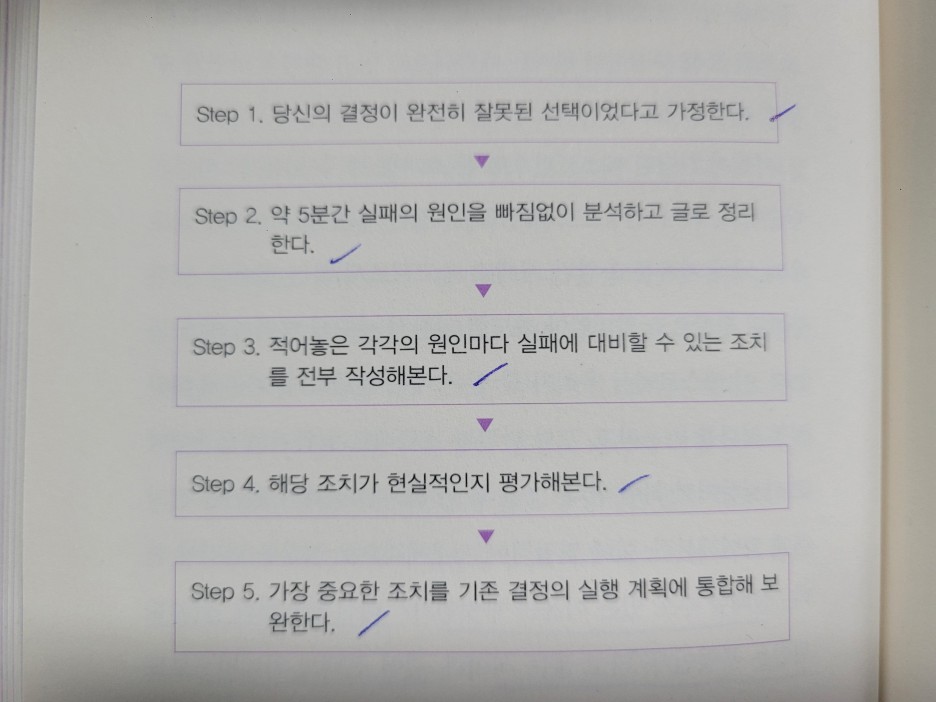 Step 1. 당신의 결정이 완전히 잘못된 선택이었다고 가정한다.
Step 2. 약 5분간 실패의 원인을 빠짐없이 분석하고 글로 정리
한다.
Step 3. 적어놓은 각각의 원인마다 실패에 대비할 수 있는 조치
를 전부 작성해본다.
Step 4. 해당 조치가 현실적인지 평가해본다.
Step 5. 가장 중요한 조치를 기존 결정의 실행 계획에 통합해 보
완한다.